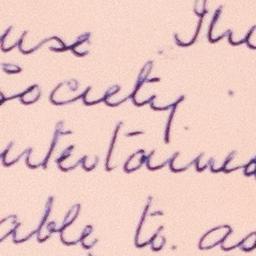 use. The
Society.
entertained
able to as